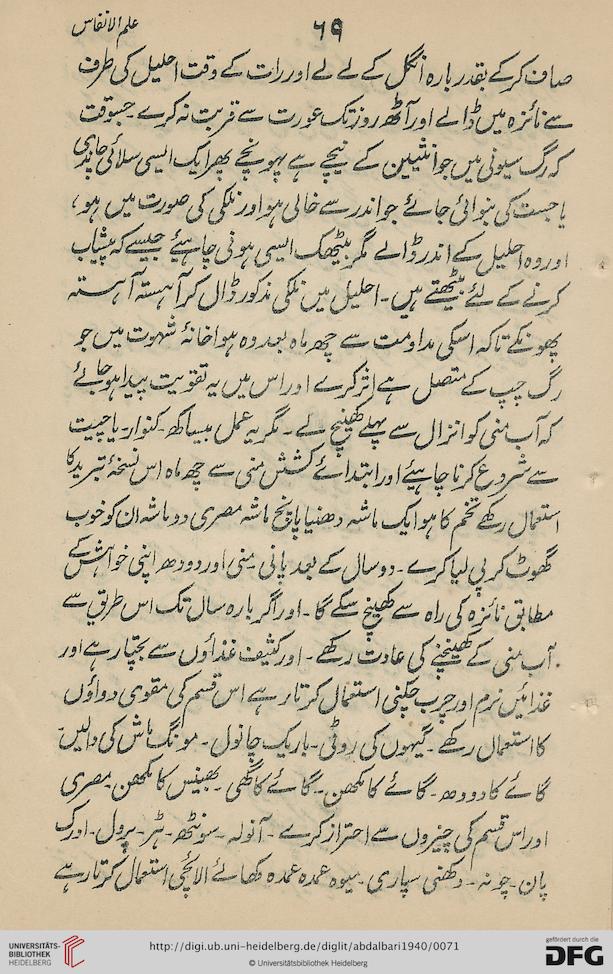 علم الانفاس
۶۹
صاف کرکے بقدر بارہ انگل کے لے لے اور رات کے وقت احلیل کی طرف
سے نائزہ میں ڈالے اور آٹھ روز تک عورت سے قربت نہ کرے۔ جسوقت
کہ رگ سیونی میں جو انثیین کے نیچے ہے پہونچے پھر ایک ایسی سلائی چاندی
یا جست کی بنوائی جائے جو اندر سے خالی ہو اور نلکی کی صورت میں ہو،
اور وہ احلیل کے اندر ڈالے مگر بیٹھک ایسی ہونی چاہیئے جیسے کہ پیشاب
کرنے کے لئے بیٹھتے ہیں۔ احلیل میں نلکی مذکور ڈال کر آہستہ آہستہ
پھونکے تاکہ اسکی مداومت سے چھ ماہ بعد وہ ہوا خانۂ شہوت میں جو
رگ چپ کے متصل ہے اثر کرے اور اس میں یہ تقویت پیدا ہو جائے
کہ آب منی کو انزال سے پہلے کھینچ لے۔ مگر یہ عمل بیساکھ۔ کنوار۔ یا چیت
سے شروع کرنا چاہیئے اور ابتدائے کشش منی سے چھ ماہ اس نسخۂ تبرید کا
استعمال رکھے تخم کاہو ایک ماشہ دھنیا پانچ ماشہ مصری دو ماشہ ان کو خوب
گھوٹ کر پی لیا کرے۔ دو سال کے بعد پانی منی اور دودھ اپنی خواہش کے
مطابق نائزہ کی راہ سے کھینچ سکے گا۔ اور اگر بارہ سال تک اس طریق سے
آب منی کے کھینچنے کی عادت رکھے۔ اور کثیف غذاؤں سے بچتا رہے اور
غذائیں نرم اور چرب چکنی استعمال کرتا رہے اس قسم کی مقوی دواؤں
کا استعمال رکھے۔ گیہوں کی روٹی۔ باریک چانول۔ مونگ ماش کی دالیں
گائے کا دودھ۔ گائے کا مکھن۔ گائے کا گھی۔ بھینس کا مکھن۔ مصری
اور اس قسم کی چیزوں سے احتراز کرے۔ آنولہ۔ سونٹھ۔ ہڑ۔ پرول۔ اورک
پان۔ چونہ۔ دکھنی سپاری۔ میوہ عمدہ عمدہ کھائے الائچی استعمال کرتا رہے
UNIVERSITÄTS-
BIBLIOTHEK
HEIDELBERG
http://digi.ub.uni-heidelberg.de/diglit/abdalbari1940/0071
© Universitätsbibliothek Heidelberg
gefördert durch die
DFG